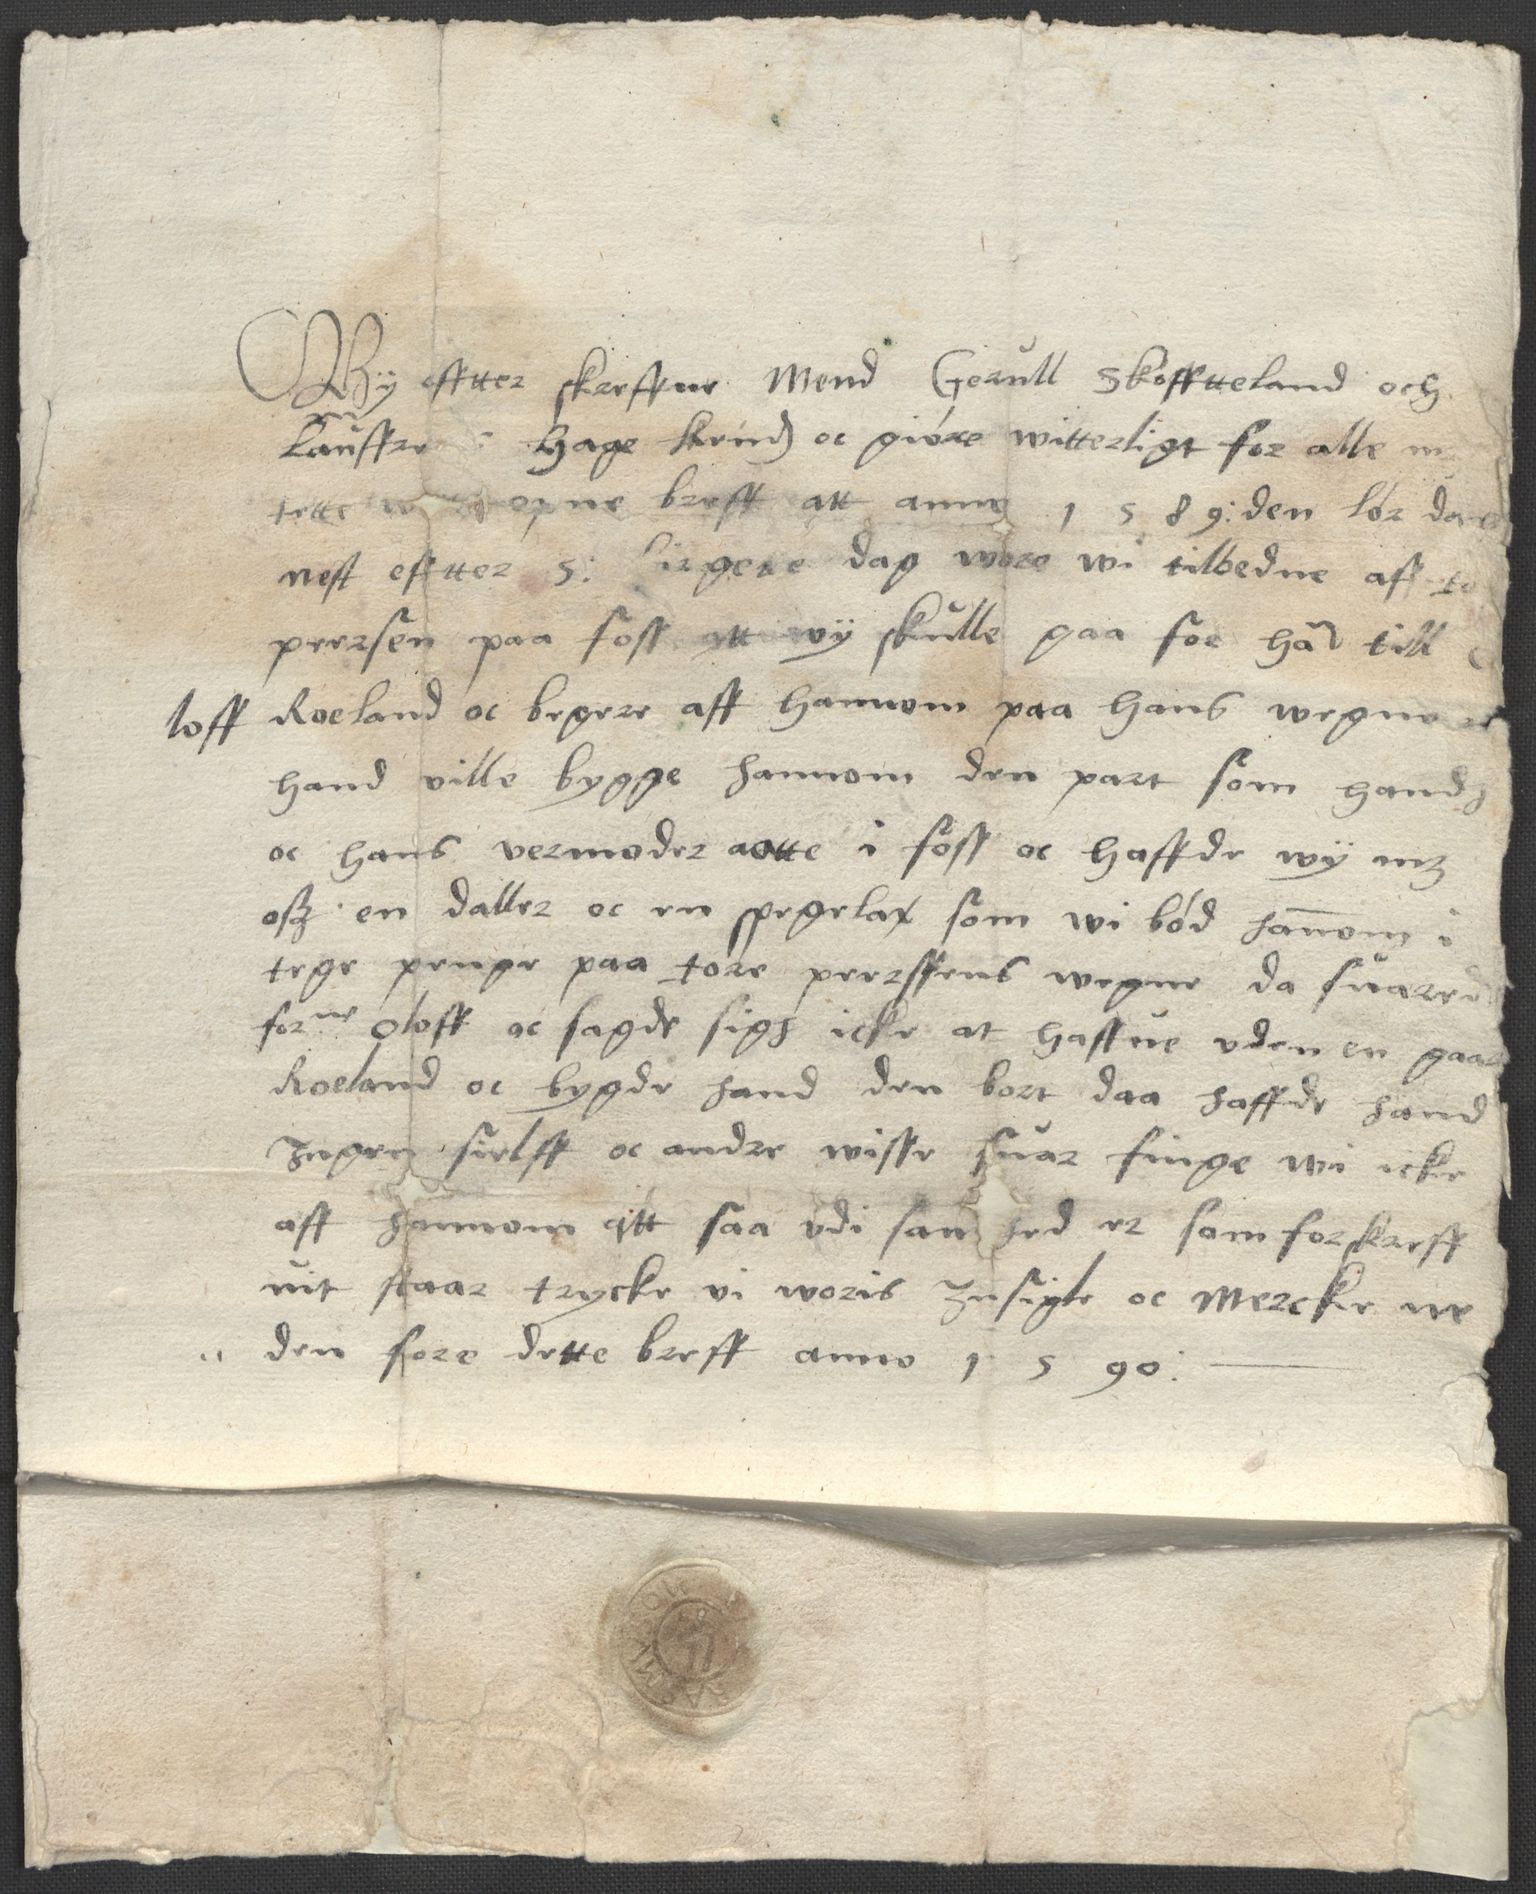 Wÿ effter skreffne Mend Gerull Skoffteland och
Lauffre i Hage kendis oc giøre witterligt for alle m
tette opne breff att anno 1 5 8 9: den lør da
nest effter S: birgete dag wore wi tilbedne aff to
peersen paa foss att wÿ skulle gaa for hans till o
loff Roeland oc begere aff hannom paa hans wegne at
hand ville bygge hannom den part som hand
oc hans vermoder aotte i foss oc haffde wÿ mz
osz en daller oc en spegelax som wi bød hannom i
tege penge paa tore peerssens wegne da suarede
forne oloff oc sagde sigh icke at haffue vden en gaar
Roeland oc bygde hand den bort daa haffde hand
Ingen sielff oc andre wisse suar finge wi icke
aff hannom att saa vdi sanhed er som forskreff
uit staar trycke vi woris Insigle oc Mercke ne
den fore dette breff anno 1 5 90: